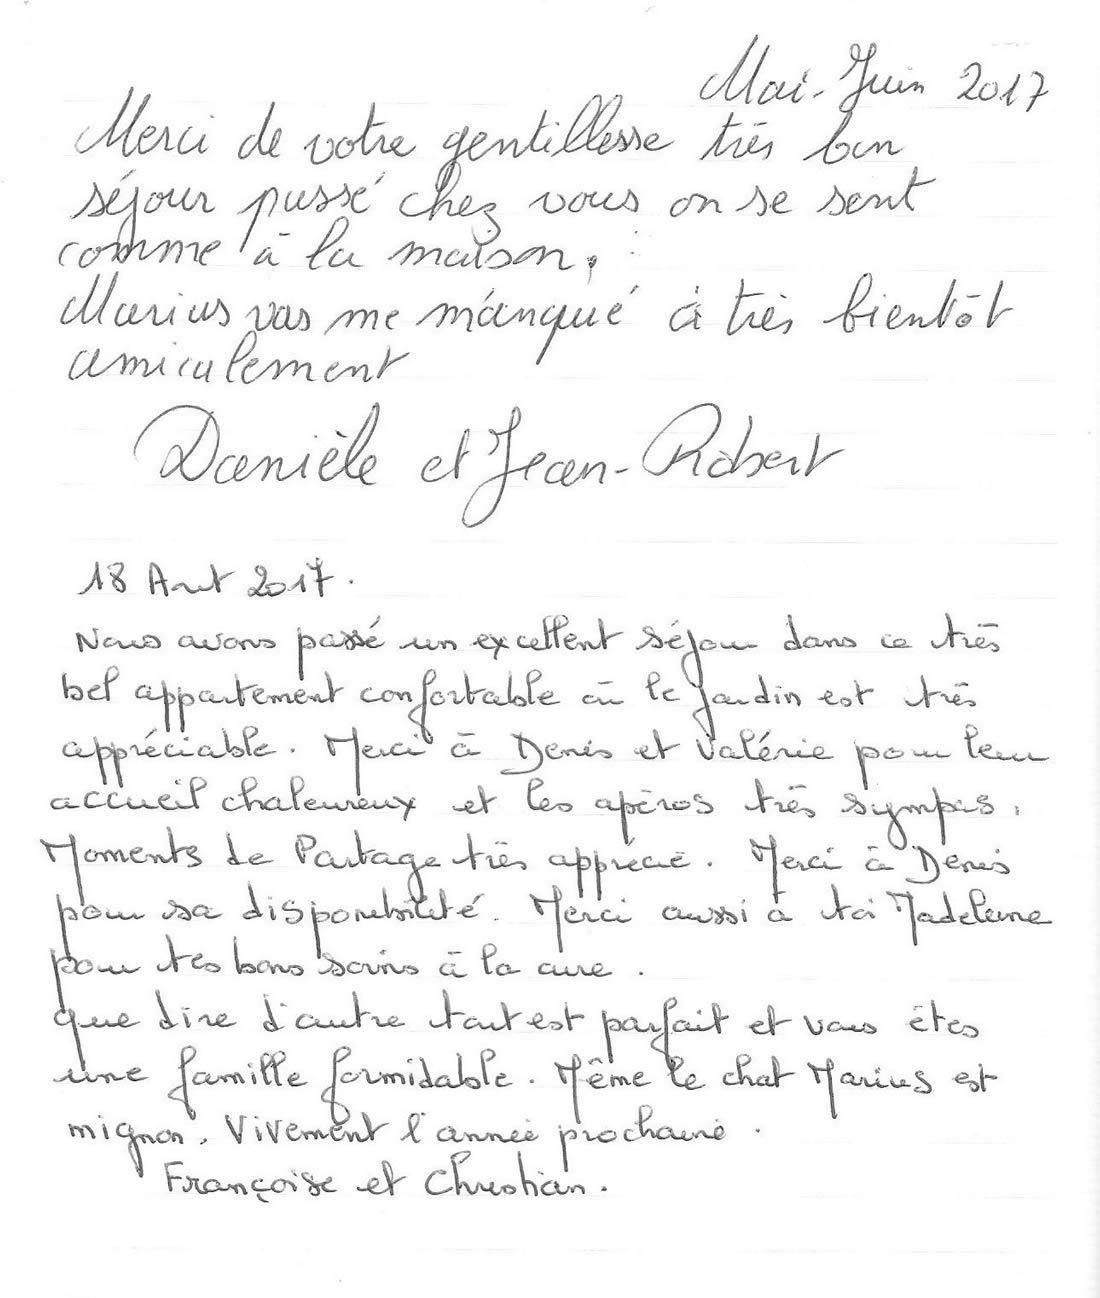 Mai-Juin 2017
Merci de votre gentillesse très bon
séjour passé chez vous on se sent
comme à la maison.
Marius vas me manqué à très bientôt
amicalement
Danièle et Jean-Robert
18 Aout 2017.
Nous avons passé un excellent séjour dans ce très
bel appartement confortable où le jardin est très
appréciable. Merci à Denis et Valérie pour leur
accueil chaleureux et les apéros très sympas.
Moments de Partage très apprécié. Merci à Denis
pour sa disponibilité. Merci aussi à toi Madeleine
pour tes bons soins à la cure.
que dire d'autre tout est parfait et vous êtes
une famille formidable. Même le chat Marius est
mignon. Vivement l'année prochaine.
Françoise et Christian.